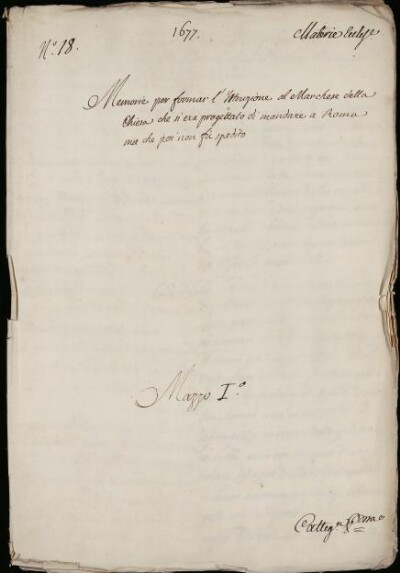 1677.
Materie Eccles.e
N.o 18.
Memorie per formar l'Istruzione al Marchese della
Chiesa che si era progettato di mandare a Roma
ma che poi non fù spedito
Mazzo I.o
Categ.a